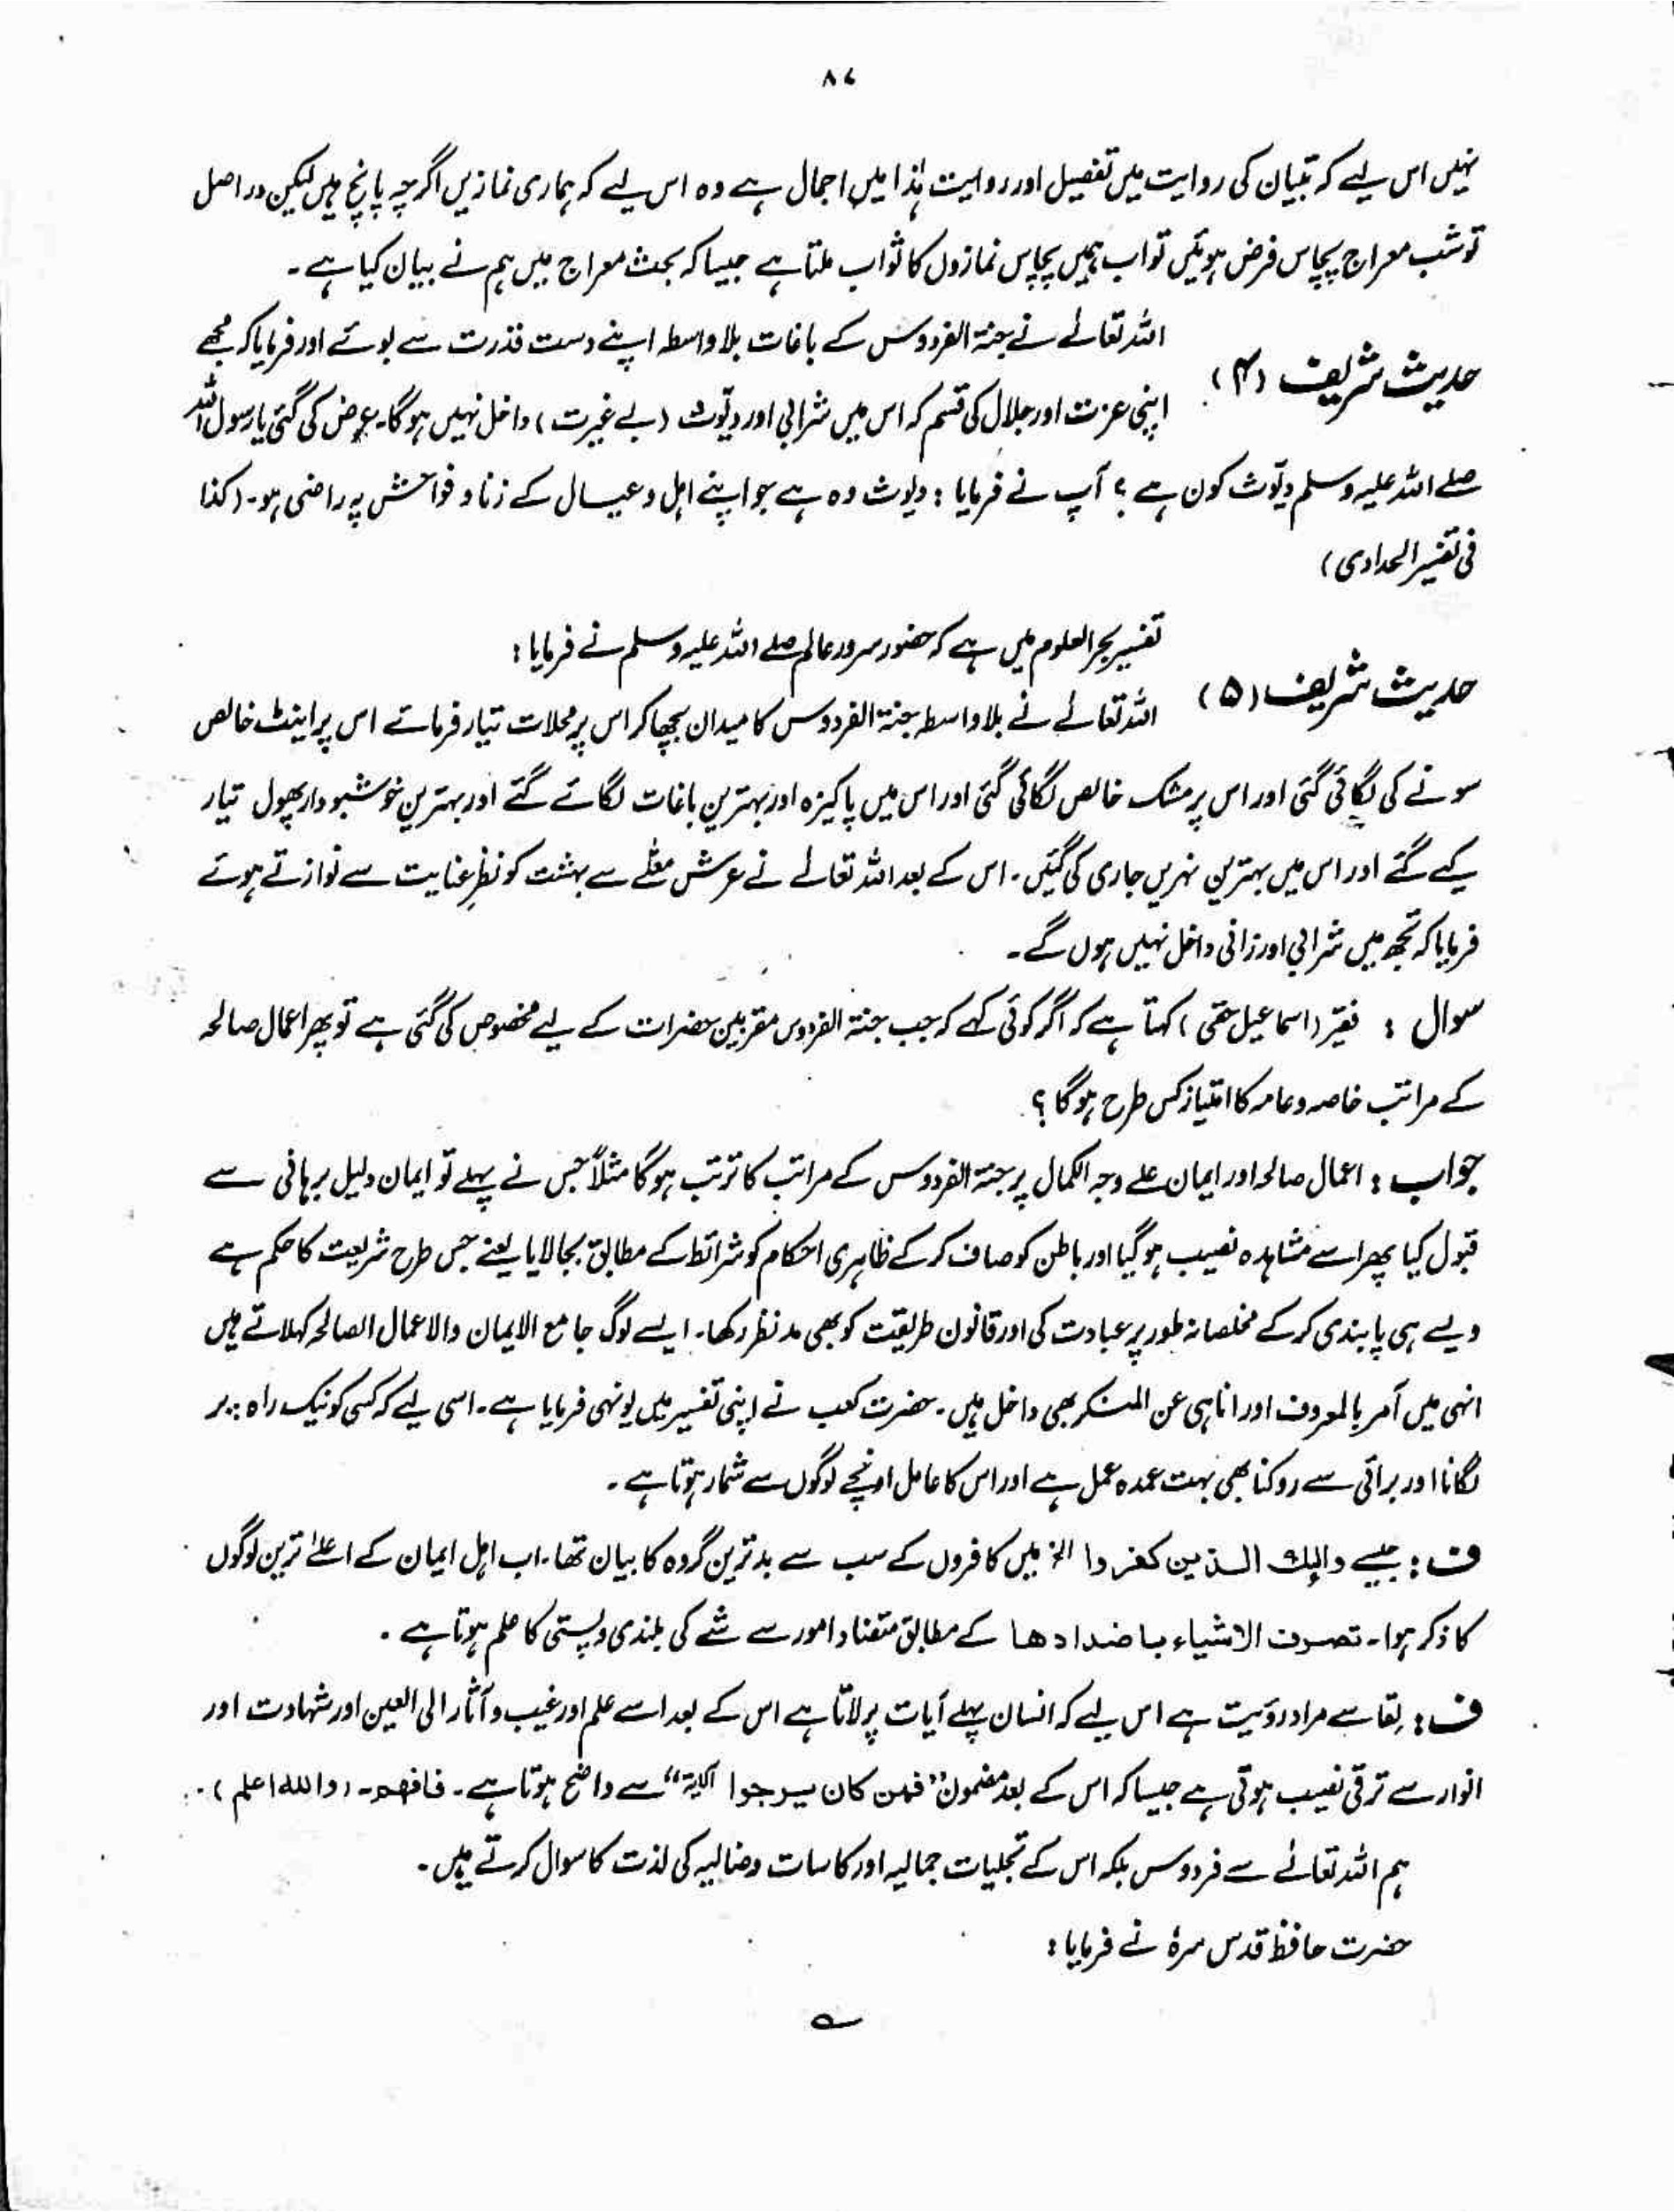 ۸۷
نہیں اس لیے کہ تبیان کی روایت میں تفصیل اور روایت ہٰذا میں اجمال ہے وہ اس لیے کہ ہماری نمازیں اگرچہ پانچ ہیں لیکن دراصل
تو شب معراج پچاس فرض ہوئیں تو اب ہمیں پچاس نمازوں کا ثواب ملتا ہے جیسا کہ بحث معراج میں ہم نے بیان کیا ہے۔
حدیث شریف (۴) اللہ تعالےٰ نے جنۃ الفردوس کے باغات بلاواسطہ اپنے دست قدرت سے بوئے اور فرمایا کہ مجھے
اپنی عزت اور جلال کی قسم کہ اس میں شرابی اور دیّوث (بے غیرت) داخل نہیں ہوگا۔ عرض کی گئی یا رسول اللہ
صلے اللہ علیہ وسلم دیّوث کون ہے؟ آپ نے فرمایا: دیوث وہ ہے جو اپنے اہل وعیال کے زنا و فواحش پہ راضی ہو۔ (کذا
فی تفسیر الحدادی)
تفسیر بحر العلوم میں ہے کہ حضور سرور عالم صلے اللہ علیہ وسلم نے فرمایا:
حدیث شریف (۵) اللہ تعالےٰ نے بلاواسطہ جنۃ الفردوس کا میدان بچھا کر اس پر محلات تیار فرمائے اس پر اینٹ خالص
سونے کی لگائی گئی اور اس پر مشک خالص لگائی گئی اور اس میں پاکیزہ اور بہترین باغات لگائے گئے اور بہترین خوشبودار پھول تیار
کیے گئے اور اس میں بہترین نہریں جاری کی گئیں۔ اس کے بعد اللہ تعالےٰ نے عرش معلّے سے بہشت کو نظرِ عنایت سے نوازتے ہوئے
فرمایا کہ تجھ میں شرابی اور زانی داخل نہیں ہوں گے۔
سوال: فقیر (اسماعیل حقی) کہتا ہے کہ اگر کوئی کہے کہ جب جنۃ الفردوس مقربین حضرات کے لیے مخصوص کی گئی ہے تو پھر اعمال صالحہ
کے مراتب خاصہ و عامہ کا امتیاز کس طرح ہوگا؟
جواب: اعمال صالحہ اور ایمان علے وجہ الکمال پر جنۃ الفردوس کے مراتب کا ترتب ہوگا مثلاً جس نے پہلے تو ایمان دلیل برہانی سے
قبول کیا پھر اسے مشاہدہ نصیب ہوگیا اور باطن کو صاف کرکے ظاہری احکام کو شرائط کے مطابق بجا لایا یعنے جس طرح شریعت کا حکم ہے
ویسے ہی پابندی کرکے مخلصانہ طور پر عبادت کی اور قانون طریقت کو بھی مد نظر رکھا۔ ایسے لوگ جامع الایمان والاعمال الصالحہ کہلاتے ہیں
انہی میں آمر بالمعروف اور اناہی عن المنکر بھی داخل ہیں۔ حضرت کعب نے اپنی تفسیر میں یونہی فرمایا ہے۔ اسی لیے کہ کسی کو نیک راہ پر
لگانا اور برائی سے روکنا بھی بہت عمدہ عمل ہے اور اس کا عامل اونچے لوگوں سے شمار ہوتا ہے۔
ف: جیسے والیك الذین کفروا الخ میں کافروں کے سب سے بدترین گروہ کا بیان تھا۔ اب اہل ایمان کے اعلےٰ ترین لوگوں
کا ذکر ہوا۔ تصرف الاشیاء باضدادها کے مطابق متضاد امور سے شے کی بلندی و پستی کا علم ہوتا ہے۔
ف: لِقا سے مراد رؤیت ہے اس لیے کہ انسان پہلے آیات پر لاتا ہے اس کے بعد اسے علم اور غیب و آثار الی العین اور شہادت اور
انوار سے ترقی نصیب ہوتی ہے جیسا کہ اس کے بعد مضمون "فمن کان یرجوا الآیۃ" سے واضح ہوتا ہے۔ فافهم۔ (والله اعلم)۔
ہم اللہ تعالےٰ سے فردوس بلکہ اس کے تجلیات جمالیہ اور کاسات وصالیہ کی لذت کا سوال کرتے ہیں۔
حضرت حافظ قدس سرہٗ نے فرمایا:
ے